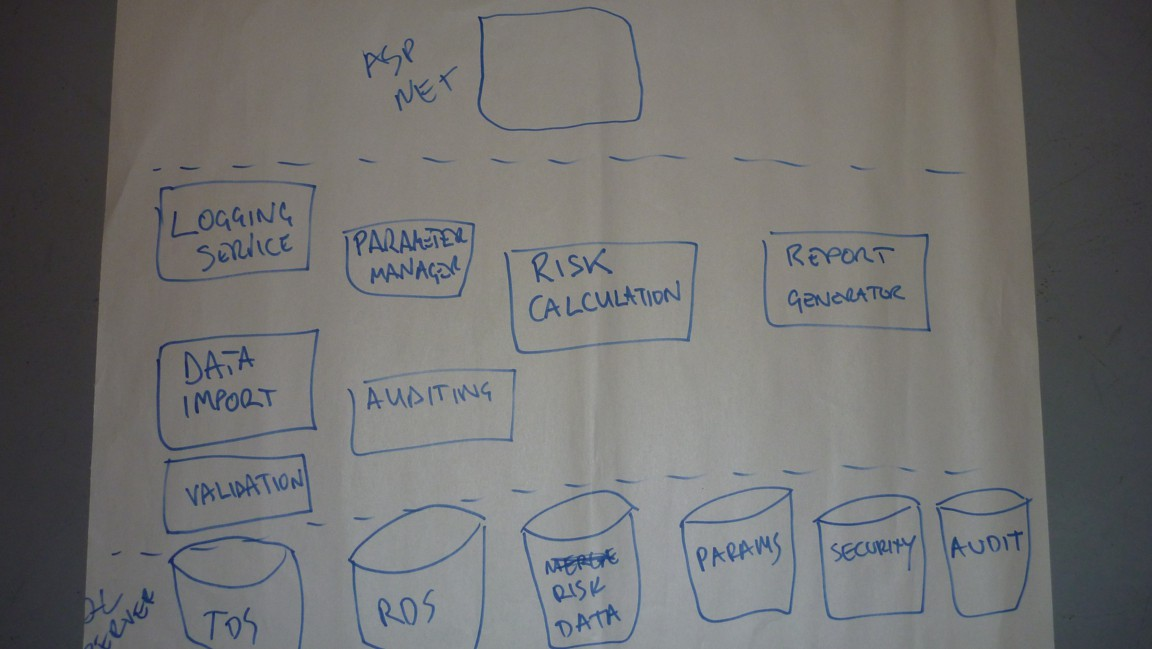 ASP
NET
LOGGING
SERVICE
PARAMETER
MANAGER
RISK
CALCULATION
REPORT
GENERATOR
DATA
IMPORT
AUDITING
VALIDATION
SERVER
TDS
RDS
RISK
DATA
PARAMS
SECURITY
AUDIT